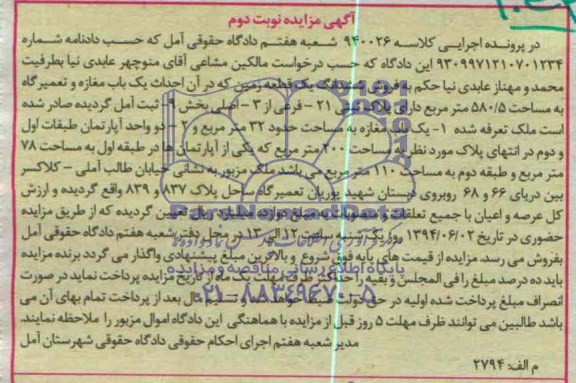 آگهی مزایده نوبت دوم
در پرونده اجرایی کلاسه ۹۴۰۰۲۶ شعبه هفتم دادگاه حقوقی آمل که حسب دادنامه شماره
۹۳۰۹۹۷۱۲۱۰۷۰۱۲۳۴ این دادگاه که حسب درخواست مالکین مشاعی آقای منوچهر عابدی نیا بطرفیت
محمد و مهناز عابدی نیا حکم به فروش ششدانگ یک قطعه زمین که در آن احداث یک باب مغازه و تعمیرگاه
به مساحت ۵۸۰/۵ متر مربع دارای پلاک ثبتی ۲۱ - فرعی از ۳ - اصلی بخش ۹- ثبت آمل گردیده صادر شده
است ملک تعرفه شده ۱- یک باب مغازه به مساحت حدود ۳۲ متر مربع و ۲ - دو واحد آپارتمان طبقات اول
و دوم در انتهای پلاک مورد نظر به مساحت ۲۰۰ متر مربع که یکی از آپارتمان ها در طبقه اول به مساحت ۷۸
متر مربع و طبقه دوم به مساحت ۱۱۰ متر مربع می باشد ملک مزبور به نشانی خیابان طالب آملی - کلاکسر
بین دریای ۶۶ و ۶۸ روبروی دبستان شهید پوریان تعمیرگاه ساحل پلاک ۸۳۷ و ۸۳۹ واقع گردیده و ارزش
کل عرصه و اعیان با جمیع تعلقات و منصوبات به مبلغ دوازده میلیارد ریال تعیین گردیده که از طریق مزایده
حضوری در تاریخ ۱۳۹۴/۰۶/۰۲ روز یک شنبه ساعت ۱۲ الی ۱۳ در محل دفتر شعبه هفتم دادگاه حقوقی آمل
بفروش می رسد. مزایده از قیمت های پایه فوق شروع و بالاترین مبلغ پیشنهادی واگذار می گردد برنده مزایده
باید ده درصد مبلغ را فی المجلس و بقیه را حداکثر ظرف مهلت یک ماه از تاریخ مزایده پرداخت نماید در صورت
انصراف مبلغ پرداخت شده اولیه در حق دولت ضبط بعد از پرداخت تمام بهای آن می
باشد طالبین می توانند ظرف مهلت ۵ روز قبل از مزایده با هماهنگی این دادگاه اموال مزبور را ملاحظه نمایند.
مدیر شعبه هفتم اجرای احکام حقوقی دادگاه حقوقی شهرستان آمل
م الف: ۲۷۹۴
ParsNamadData
پایگاه اطلاع رسانی مناقصه و مزایده
۰۲۱-۸۸۳۴۹۶۷۰-۵